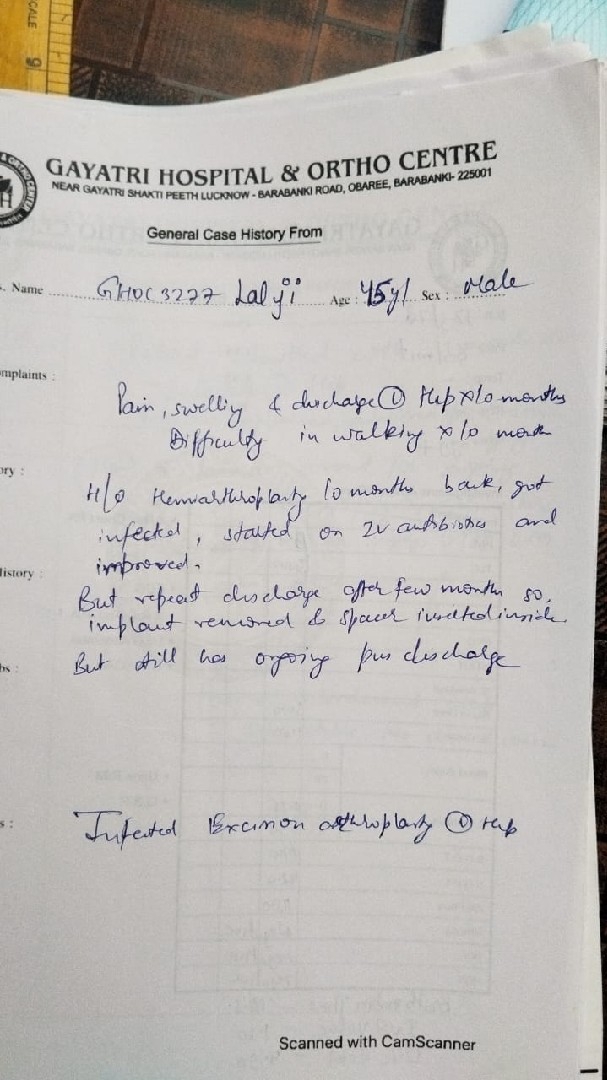 SCALE 9
GAYATRI HOSPITAL & ORTHO CENTRE
NEAR GAYATRI SHAKTI PEETH LUCKNOW - BARABANKI ROAD, OBAREE, BARABANKI- 225001
General Case History From
. Name ........ GHOC3277 Lal ji ..... Age : 45y/ Sex : Male
mplaints :
Pain, swelling & discharge Ⓛ Hip x10 months
Difficulty in walking x10 month
ory :
H/o Hemiarthroplasty 10 months back, got
infected, started on IV antibiotics and
improved.
History
But repeat discharge after few month so,
implant removed & spacer inserted inside.
bs :
But still has ongoing pus discharge
s :
Infected Excision arthroplasty Ⓛ Hip
Scanned with CamScanner